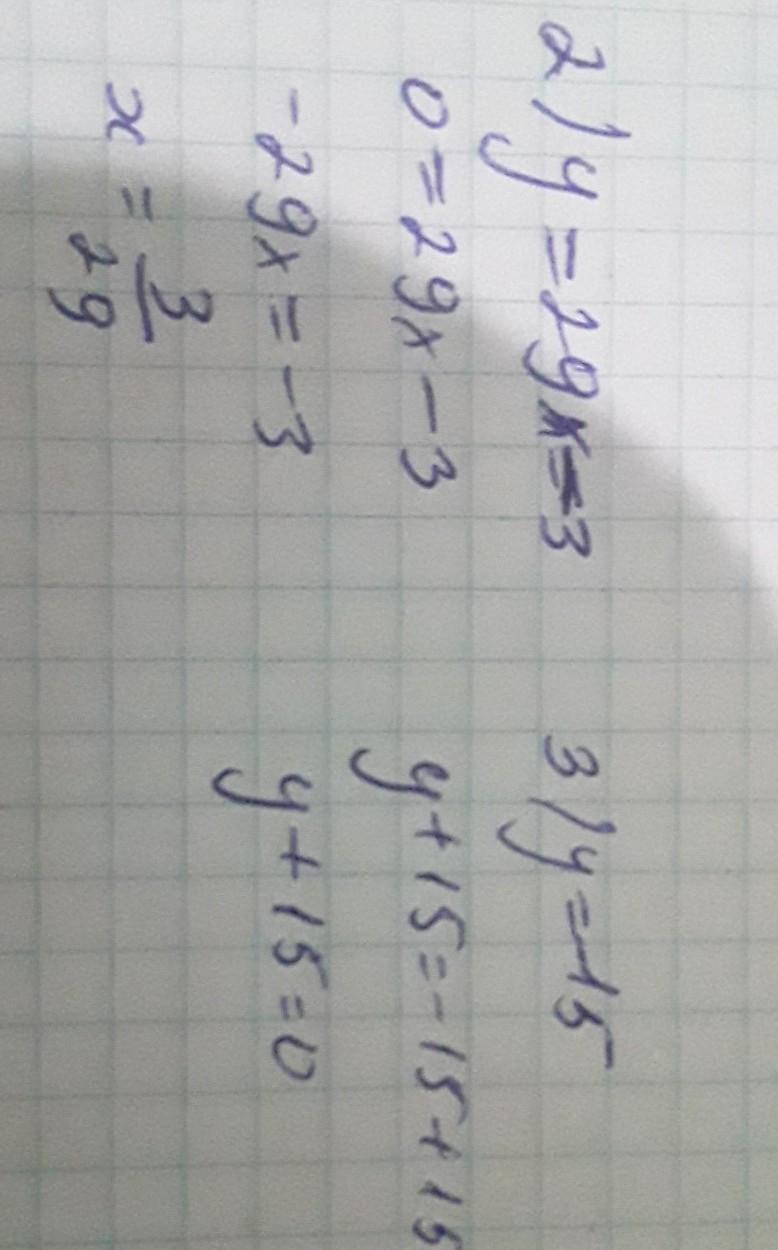 2) y = 29x - 3
0 = 29x - 3
-29x = -3
x = 3/29
3) y = -15
y + 15 = -15 + 15
y + 15 = 0